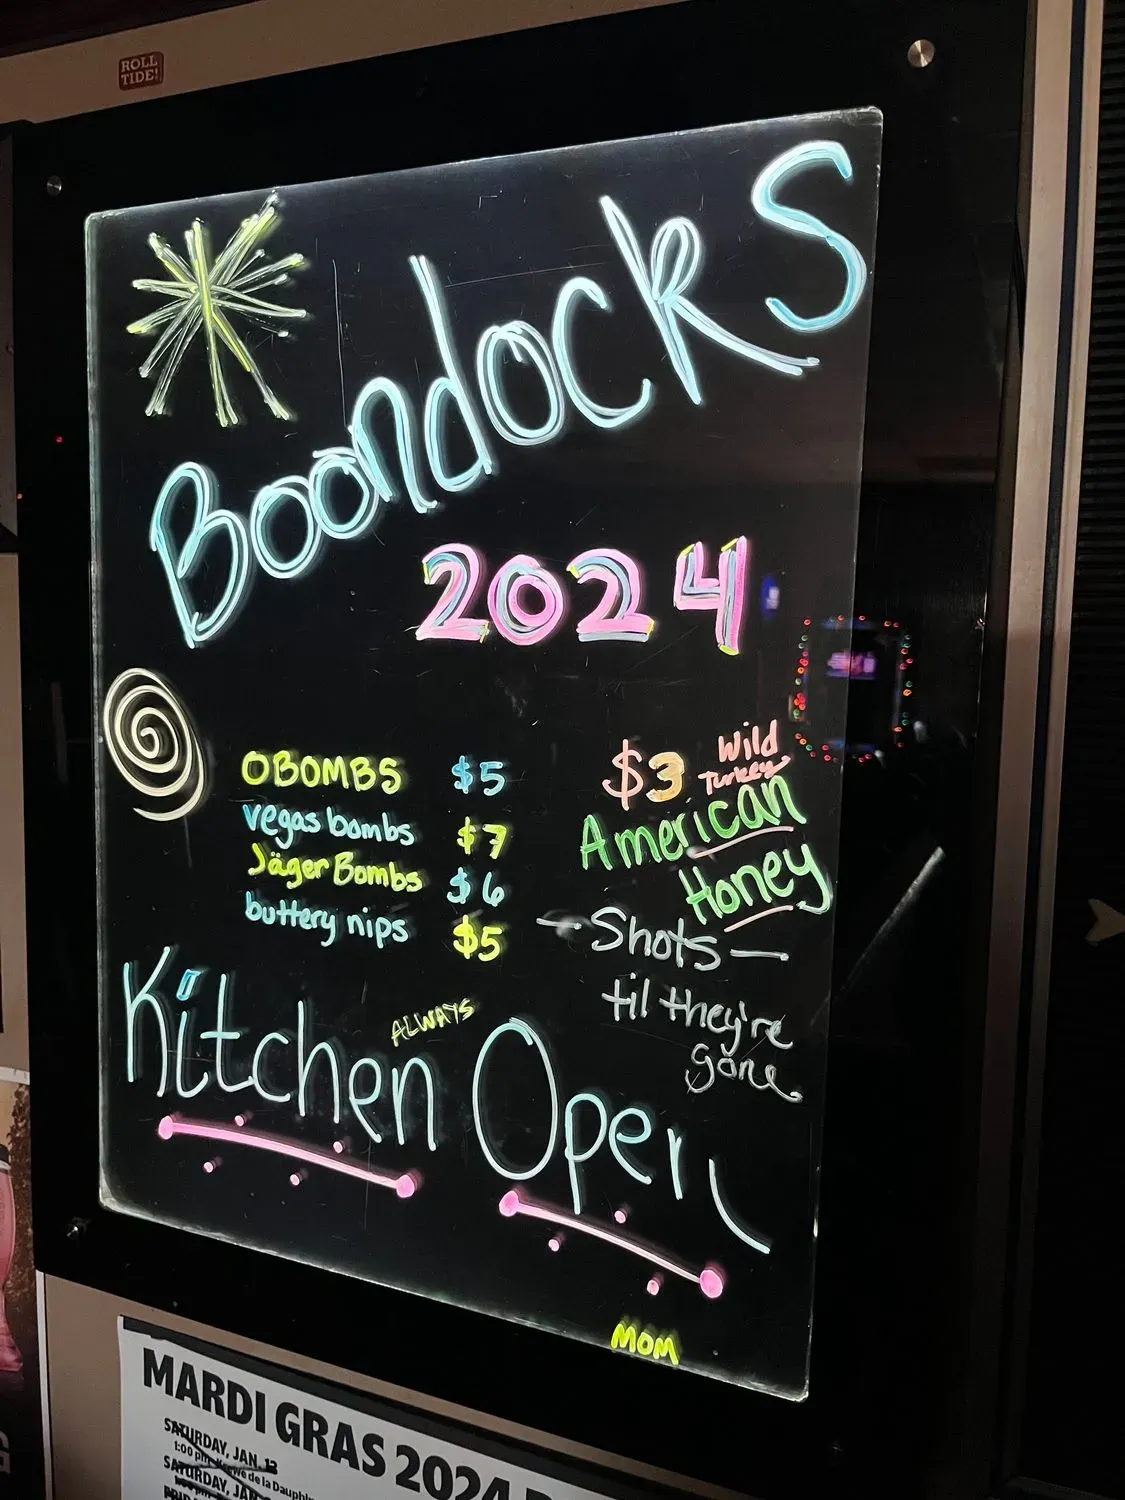 ROLL
TIDE!
Boondocks
2024
OBOMBS $5
vegas bombs $7
Jäger Bombs $6
buttery nips $5
$3 Wild
Turkey
American
Honey
— Shots —
til they're
gone
Kitchen ALWAYS Open
MOM
MARDI GRAS 2024
SATURDAY, JAN. 13
1:00 pm Krewe de la Dauphin
SATURDAY, JAN